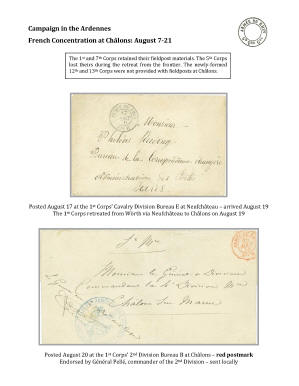 Campaign in the Ardennes
French Concentration at Châlons: August 7-21
The 1st and 7th Corps retained their fieldpost materials. The 5th Corps
lost theirs during the retreat from the frontier. The newly formed
12th and 13th Corps were not provided with fieldposts at Châlons.
Monsieur
Bureau de la Correspondance étrangère
Administration des Postes
Paris
Posted August 17 at the 1st Corps' Cavalry Division Bureau E at Neufchâteau – arrived August 19
The 1st Corps retreated from Wörth via Neufchâteau to Châlons on August 19
Monsieur le Général de Division
Commandant la 2e Division
Châlons sur Marne
Posted August 20 at the 1st Corps' 2nd Division Bureau B at Châlons – red postmark
Endorsed by Général Pellé, commander of the 2nd Division – sent locally